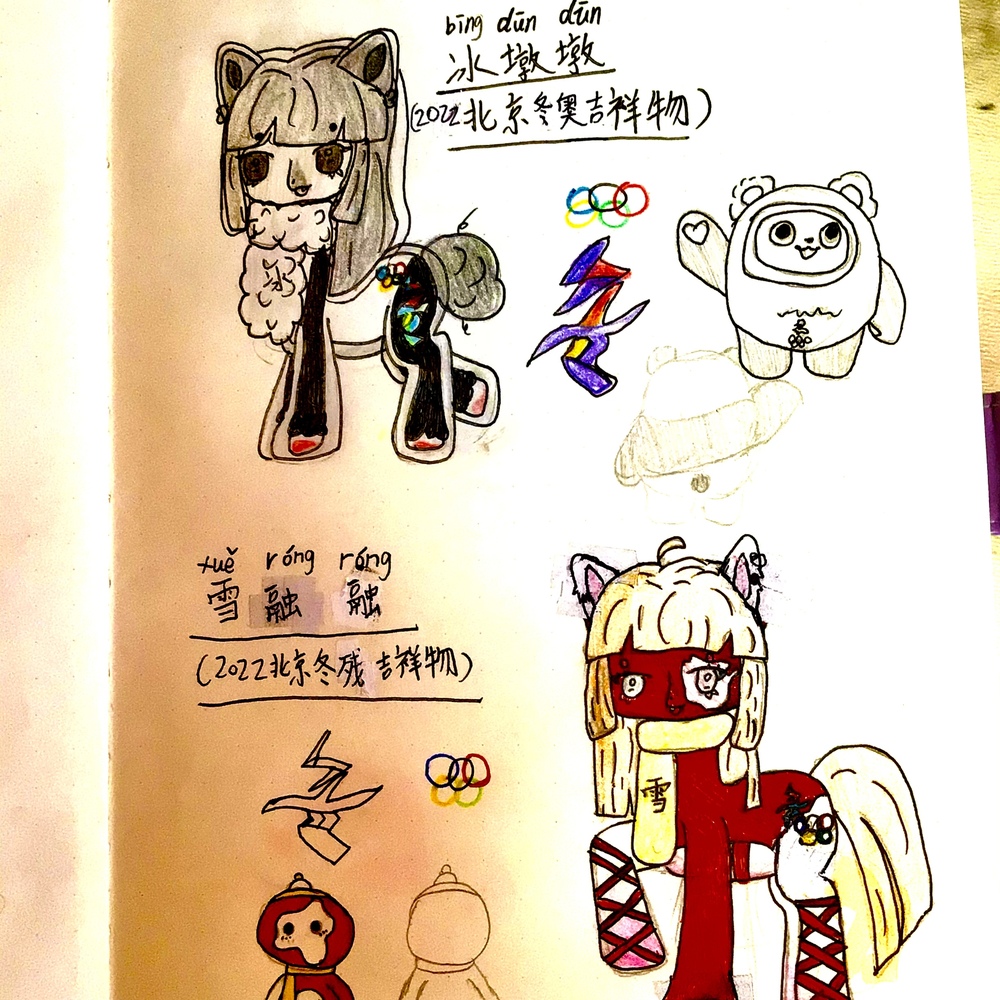 bīng dūn dūn
冰墩墩
(2022北京冬奥吉祥物)
冰
xuě róng róng
雪融融
(2022北京冬残吉祥物)
雪